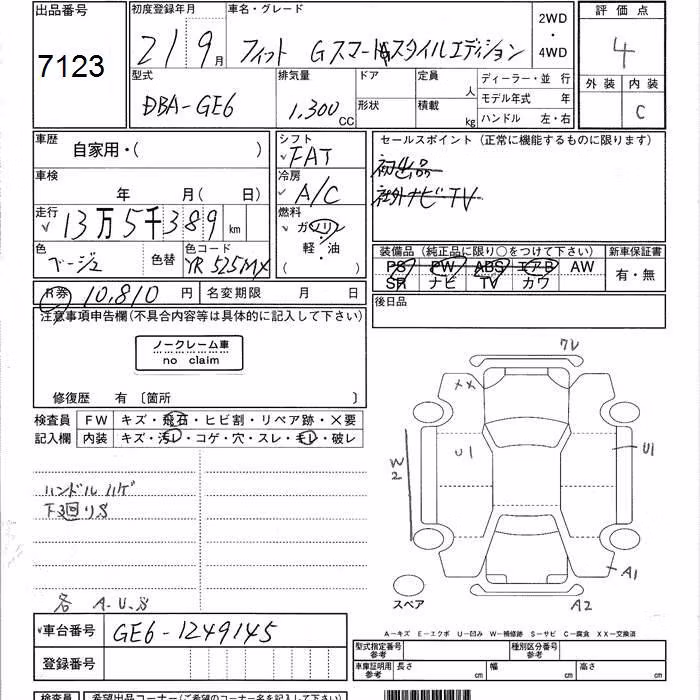 出品番号
7123
初度登録年月
21 9月
車名・グレード
フィット Gスマートスタイルエディション
2WD
・
4WD
評価点
4
外装 内装
C
型式
DBA-GE6
排気量
1,300 CC
ドア
形状
定員 人
積載 kg
ディーラー・並行
モデル年式 年
ハンドル 左・右
車歴
自家用・( )
車検
年 月( 日)
走行
13万5千389 km
色
ベージュ
色替
色コード
YR525MX
シフト
FAT
冷房
A/C
燃料
ガソリン
軽・油
( )
セールスポイント(正常に機能するものに限ります)
初出品
社外ナビTV
装備品(純正品に限り○をつけて下さい)
新車保証書
PS PW ABS エアB AW
SR ナビ TV カワ
有・無
後日品
R券 10,810 円
名変期限 月 日
注意事項申告欄(不具合内容等は具体的に記入して下さい)
ノークレーム車
no claim
修復歴 有〔箇所 〕
検査員
記入欄
FW キズ・飛石・ヒビ割・リペア跡・×要
内装 キズ・汚レ・コゲ・穴・スレ・モレ・破レ
ハンドルハゲ
下回りS
各 A.U.S
ワレ
XX
U1
U1
W2
A1
A2
スペア
A-キズ E-エクボ U-凹み W-補修跡 S-サビ C-腐食 XX-交換済
車台番号
GE6-1249145
登録番号
型式指定番号
参考
種別区分番号
参考
車庫証明用
参考
長さ cm
幅 cm
高さ cm
検査員
希望出品コーナー(ご希望のコーナー名を記入下さい)